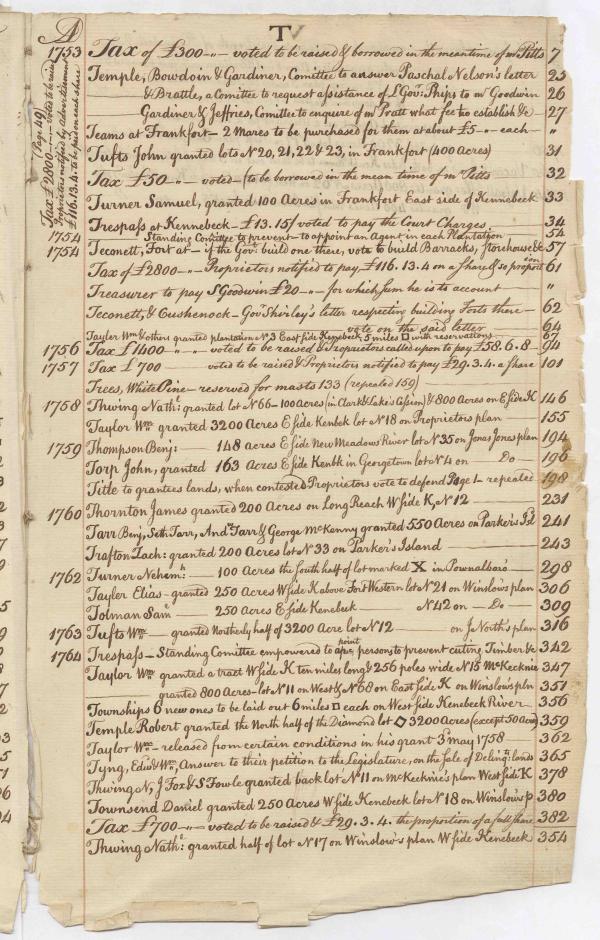 A
T
1753 Tax of £300 -"- voted to be raised & borrowed in the meantime of mr Pitts 7
Temple, Bowdoin & Gardiner, Comittee to answer Paschal Nelson's letter 25
& Brattle, a Comittee to request assistance of Lt Govr: Phips to mr Goodwin 26
Gardiner & Jeffries, Comittee to enquire of mr Pratt what fee to establish &c 27
Teams at Frankfort - 2 Mares to be purchased for them at about £5 -"- each "
Tufts John granted lots N 20, 21, 22 & 23, in Frankfort (400 Acres) 31
Tax £50 -"- voted - (to be borrowed in the mean time of mr Pitts 32
Turner Samuel, granted 100 Acres in Frankfort East side of Kennebeck 33
Trespass at Kennebeck - £13.15/ voted to pay the Court Charges 34
1754 Standing Comittee to prevent - to appoint an Agent in each Plantation 54
1754 Teconett, Fort at - if the Govr: build one there, vote to build Barracks, storehouse &c 57
Tax of £2800 -"- Proprietors notified to pay £116.13.4 on a share & so proportion 61
Treasurer to pay S Goodwin £20 -"- for which sum he is to account "
Teconett, & Cushenock - Govr Shirley's letter respecting building Forts there - 62
vote on the said letter 64
Tayler Wm & others granted plantation No 3 East side Kenebeck 5 miles □ with reservations 67
1756 Tax £1400 " -"- voted to be raised & Proprietors called upon to pay £58.6.8 - 94
1757 Tax £700 voted to be raised & Proprietors notified to pay £29.3.4. a share 101
Trees, White Pine - reserved for masts 133 (repeated 159)
1758 Thwing Nathl: granted lot N 66 - 100 Acres (in Clark & Lake's Cession) & 800 Acres on E side K 146
Taylor Wm granted 3200 Acres E side Kenbek lot N 18 on Proprietors plan 155
1759 Thompson Benj: 148 acres E side New Meadows River lot N 35 on Jonas Jones plan 194
Torp John, granted 163 Acres E side Kenbk in Georgetown lot N 4 on Do 196
Title to grantees lands, when contested Proprietors vote to defend Page 1 - repealed 198
1760 Thornton James granted 200 Acres on Long Reach W side K, N 12 231
Tarr Benj, Seth Tarr, Andw Tarr & George McKenny granted 550 Acres on Parker's Isd 241
Trafton Zach: granted 200 Acres lot N 33 on Parker's Island 243
1762 Turner Nehemh 100 Acres the south half of lot marked X in Pownalboro' 298
Tayler Elias - granted 250 Acres W side K above Fort Western lot N 21 on Winslow's plan 306
Tolman Saml 250 Acres E side Kenebeck N 42 on - Do 309
1763 Tufts Wm granted Northerly half of 3200 Acre lot N 12 on J. North's plan 316
1764 Trespass - Standing Comittee empowered to appoint persons to prevent cutting Timber &c 342
Taylor Wm granted a tract W side K ten miles long & 256 poles wide N 15 McKecknie 347
granted 800 Acres - lot N 11 on West & N 68 on East side K on Winslow's pln 351
Townships 6 new ones to be laid out 6 miles □ each on West side Kenebeck River 356
Temple Robert granted the North half of the Diamond lot ◇ 3200 Acres (except 50 Acres) 359
Taylor Wm - released from certain conditions in his grant 3d may 1758 362
Tyng, Edwd & Wm, Answer to their petition to the Legislature, on the sale of Delinqts: lands 365
Thwing N, J Fox & S Fowle granted back lot N 11 on McKecknie's plan West side K 378
Townsend Daniel granted 250 Acres W side Kenebeck lot N 18 on Winslow's p 380
Tax £700 -"- voted to be raised & £29.3.4. the proportion of a full share 382
Thwing Nathl: granted half of lot N 17 on Winslow's plan W side Kenebeck 354
(Page 49)
Tax £2800 -"- voted to be raised
Proprietors notified by advertisement
£116.13.4. to be paid on each share